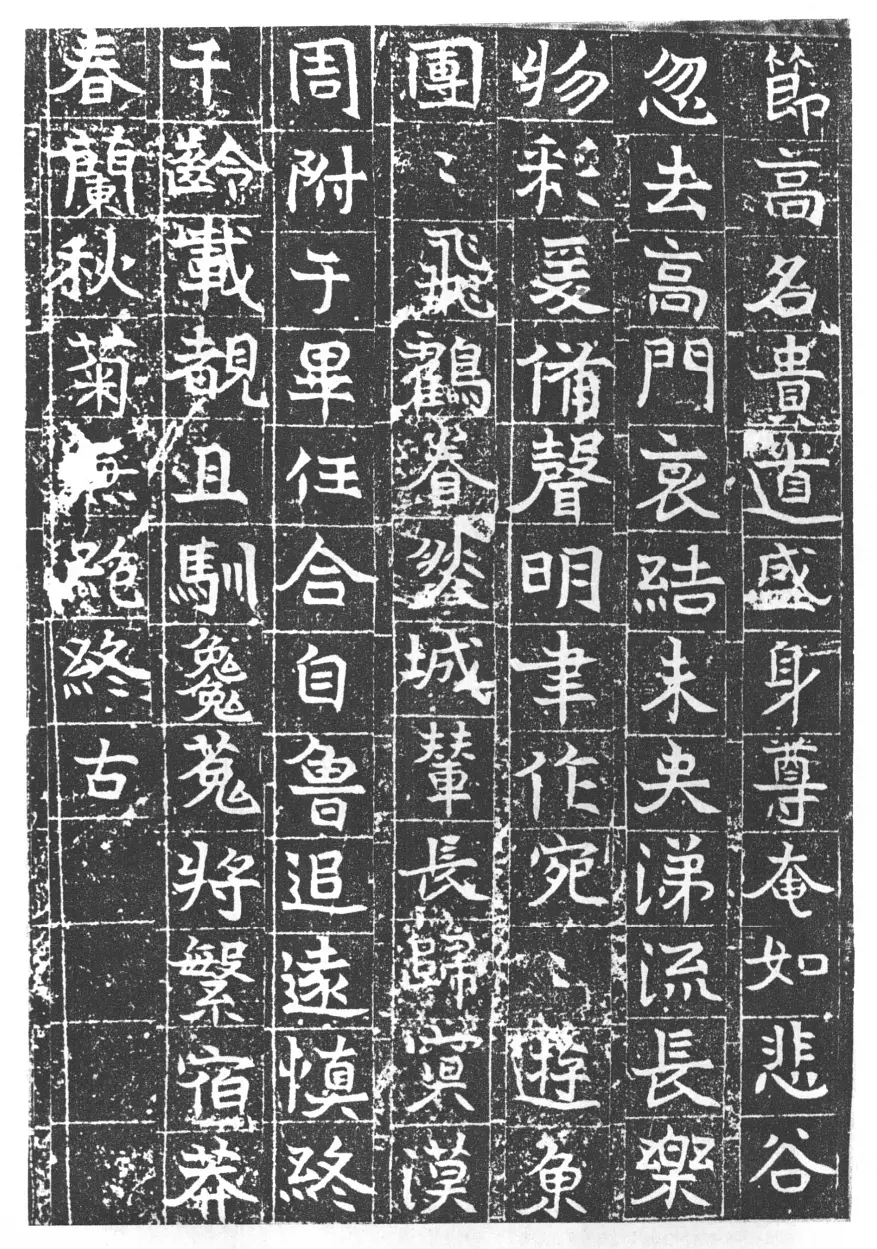 節高名貴道盛身尊奄如悲谷
忽去高門哀結未央涕流長樂
物彩爰備聲明聿作宛〻遊魚
團〻飛鶴眷然城輦長歸冥漠
周附于畢任合自魯追遠慎終
千齡載覩且馴毚菟將繁宿莽
春蘭秋菊無絕終古